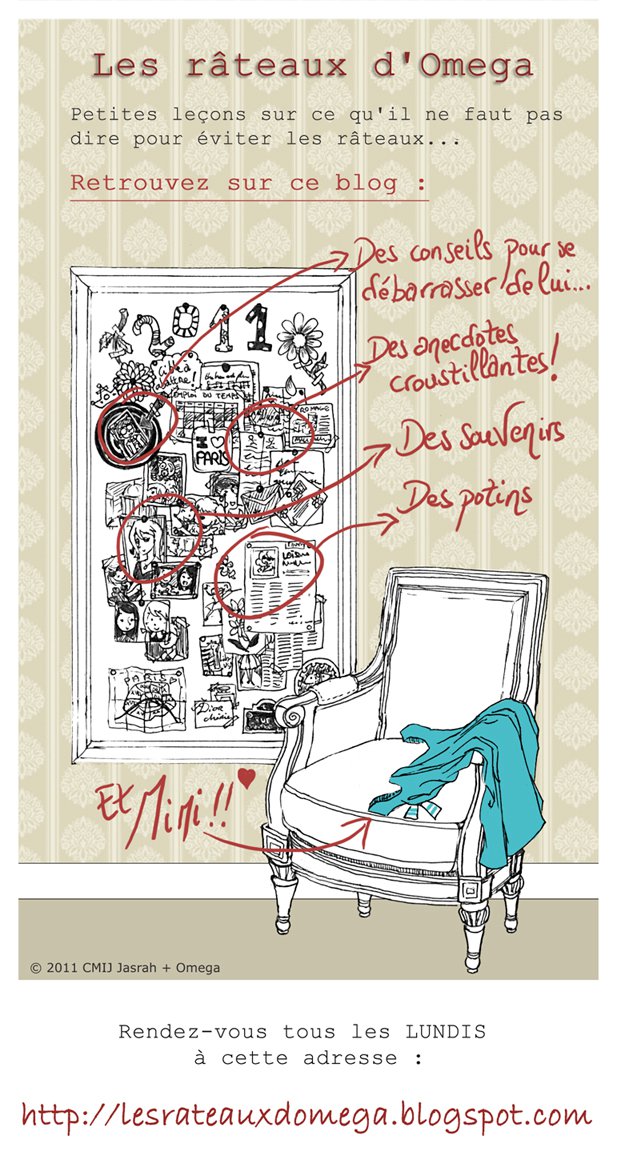 Les râteaux d'Omega
Petites leçons sur ce qu'il ne faut pas
dire pour éviter les râteaux...
Retrouvez sur ce blog :
Des conseils pour se
débarrasser de lui...
Des anecdotes
croustillantes!
Des souvenirs
Des potins
2011
EMPLOI DU TEMPS
I ♡
PARIS
Et Mimi!! ♥
© 2011 CMIJ Jasrah + Omega
Rendez-vous tous les LUNDIS
à cette adresse :
http://lesrateauxdomega.blogspot.com